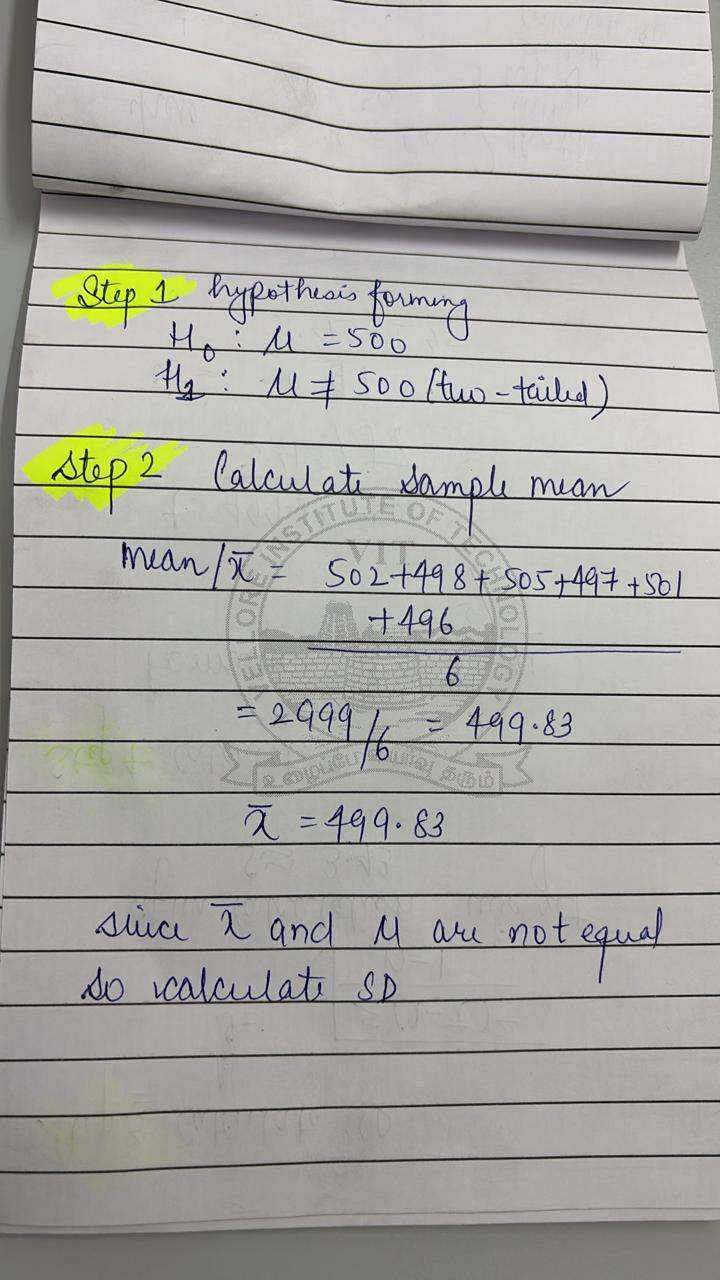 Step 1 hypothesis forming
H₀ : μ = 500
H₁ : μ ≠ 500 (two-tailed)
Step 2 Calculate sample mean
mean/x̄ = 502+498+505+497+501
+496
6
= 2999/6 = 499.83
x̄ = 499.83
since x̄ and μ are not equal
so calculate SD
VELLORE INSTITUTE OF TECHNOLOGY
VIT